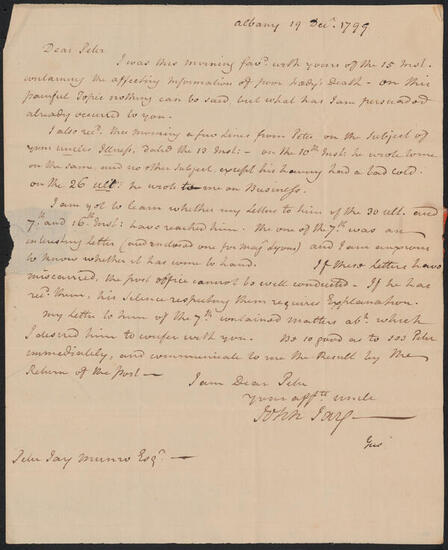 Albany 19 Decr. 1799
Dear Peter
I was this morning favd. with yours of the 15 Inst.
containing the affecting Information of poor Hady's Death – on this
painful Topic nothing can be said, but what has I am persuaded
already occurred to you.
I also recd. this morning a few lines from Peter on the Subject of
your uncles Illness, dated the 13 Inst: – on the 10th Inst: he wrote to me
on the same, and no other Subject, except his having had a bad cold.
on the 26 ult: he wrote to me on Business.
I am yet to learn whether my Letters to him of the 30 ult. and
7th. and 16th Inst: have reached him. The one of the 7th. was an
interesting Letter (and enclosed one for Majr Lyons) and I am anxious
to know whether it has come to hand. If these Letters have
miscarried, the post office cannot be well conducted – If he has
recd. them, his Silence respecting them requires Explanation.
My Letter to him of the 7th. contained matters abt. which
I desired him to confer with you. Be so good as to see Peter
immediately, and communicate to me the Result by the
Return of the Post —
I am Dear Peter
Your afftte. uncle
John Jay —
Peter Jay Munro Esqr. —